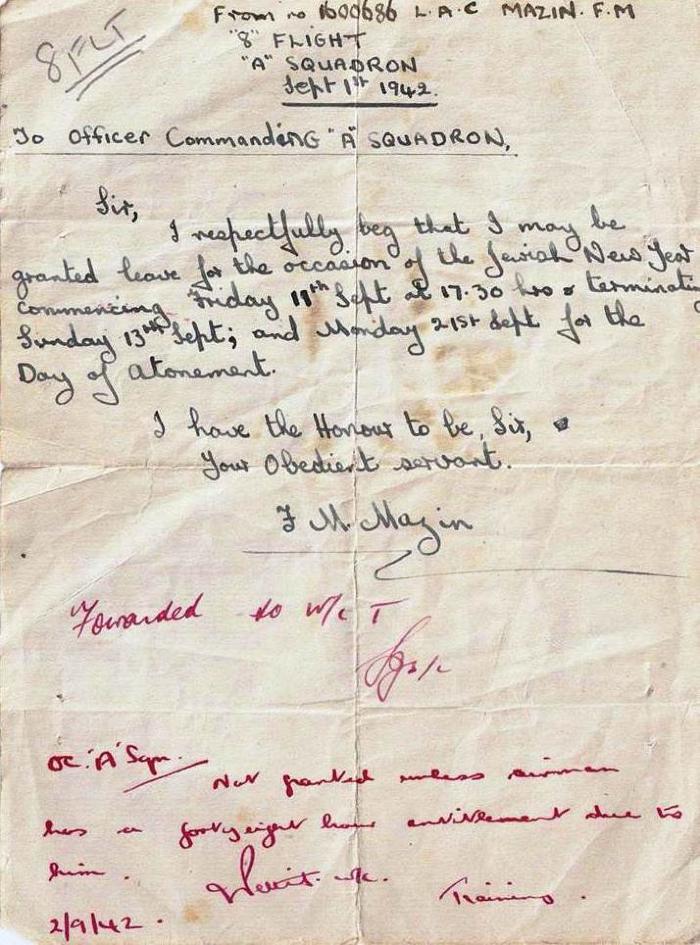 8 FLT
From no 1600686 L.A.C MAZIN. F.M
"8" FLIGHT
"A" SQUADRON
Sept 1st 1942.
To Officer Commanding "A" SQUADRON,
Sir,
I respectfully beg that I may be
granted leave for the occasion of the Jewish New Year
commencing Friday 11th Sept at 17.30 hrs & terminatin
Sunday 13th Sept; and Monday 21st Sept for the
Day of Atonement.
I have the Honour to be, Sir,
Your Obedient servant.
F M. Mazin
Forwarded to W/c T
OC. 'A' Sqn.
Not granted unless airman
has a forty eight hour entitlement due to
him.
W/c.
Training.
2/9/42.